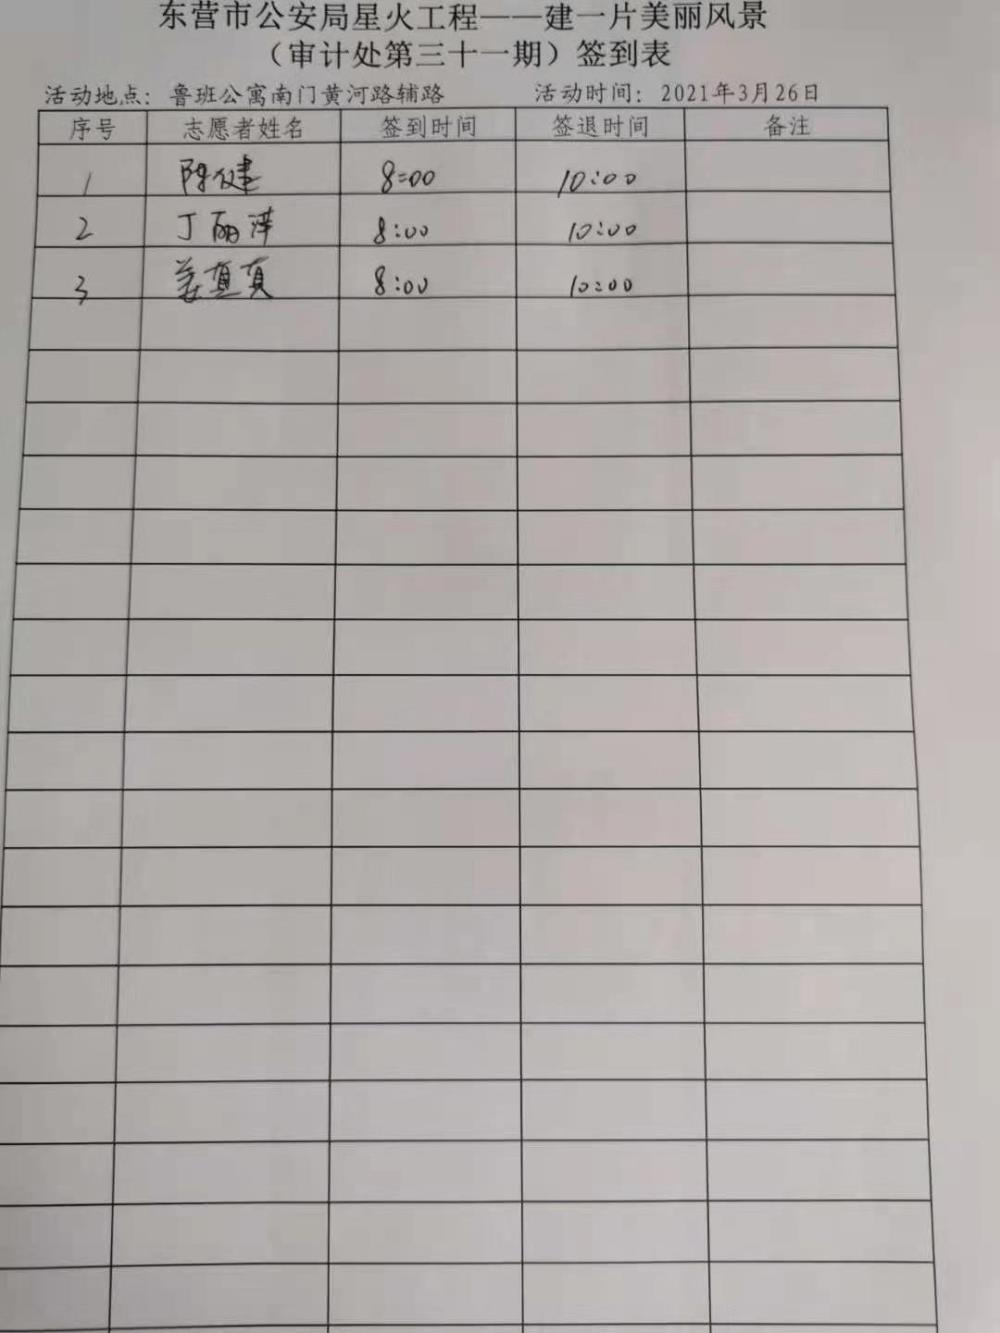 东营市公安局星火工程——建一片美丽风景
（审计处第三十一期）签到表
活动地点：鲁班公寓南门黄河路辅路 活动时间：2021年3月26日
序号 志愿者姓名 签到时间 签退时间 备注
1 陈健 8:00 10:00
2 丁丽萍 8:00 10:00
3 姜真真 8:00 10:00